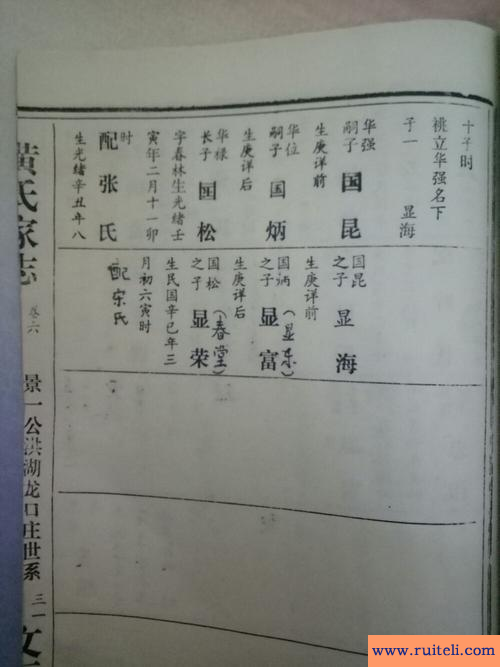 十子时
桃立华强名下
子一 显海
华强
嗣子 国昆
生庚详前
华位
嗣子 国炳
生庚详后
华禄
长子 国松
字春林生光绪壬
寅年二月十一卯
时
配张氏
生光绪辛丑年八
国昆
之子 显海
生庚详前
国炳
之子 显富（显东）
生庚详后
国松
之子 显荣（春堂）
生民国辛巳年三
月初六寅时
配宗氏
黄氏家志
卷六
景一公洪湖龙口庄世系
三一
www.ruiteli.com